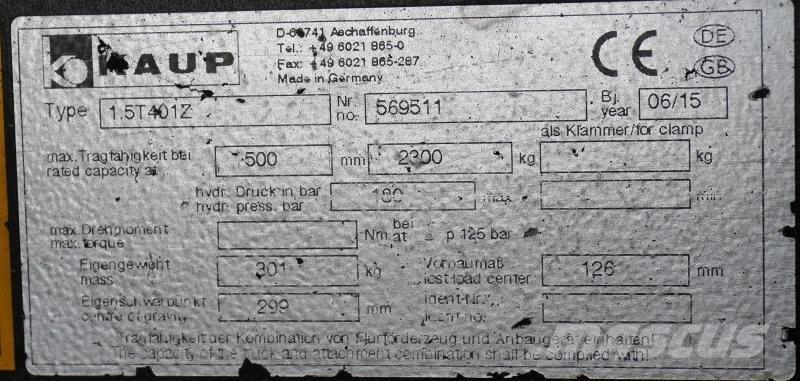 KAUP
D-63741 Aschaffenburg
Tel.: +49 6021 865-0
Fax: +49 6021 865-287
Made in Germany
CE
DE
GB
Type 1.5T401Z Nr. no. 569511 Bj. year 06/15
als Klammer/for clamp
max. Tragfähigkeit bei 500 mm 2300 kg kg
rated capacity at
hydr. Druck in bar 180 max. min.
hydr. press. bar
max. Drehmoment Nm bei
max. torque at p 125 bar
Eigengewicht 301 kg Vorbaumaß 126 mm
mass lost load center
Eigenschwerpunkt 299 mm Ident-Nr.
centre of gravity
Tragfähigkeit der Kombination von Flurförderzeug und Anbaugerät einhalten!
The capacity of the truck and attachment combination shall be complied with!